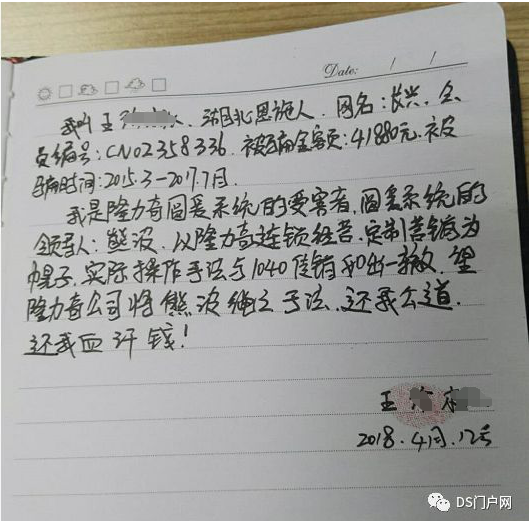 Date: / /
我叫王 湖北恩施人. 网名: 长兴. 会
员编号: CN02358336. 被骗金额: 41880元. 被
骗时间: 2015.3-2017.7月.
我是隆力奇圆爱系统的受害者, 圆爱系统的
领导人: 熊波. 以隆力奇连锁经营. 定制营销为
幌子. 实际操作手法与1040传销如出一辙. 望
隆力奇公司将熊波绳之于法. 还我公道.
还我血汗钱!
王
2018.4月.12号
DS门户网